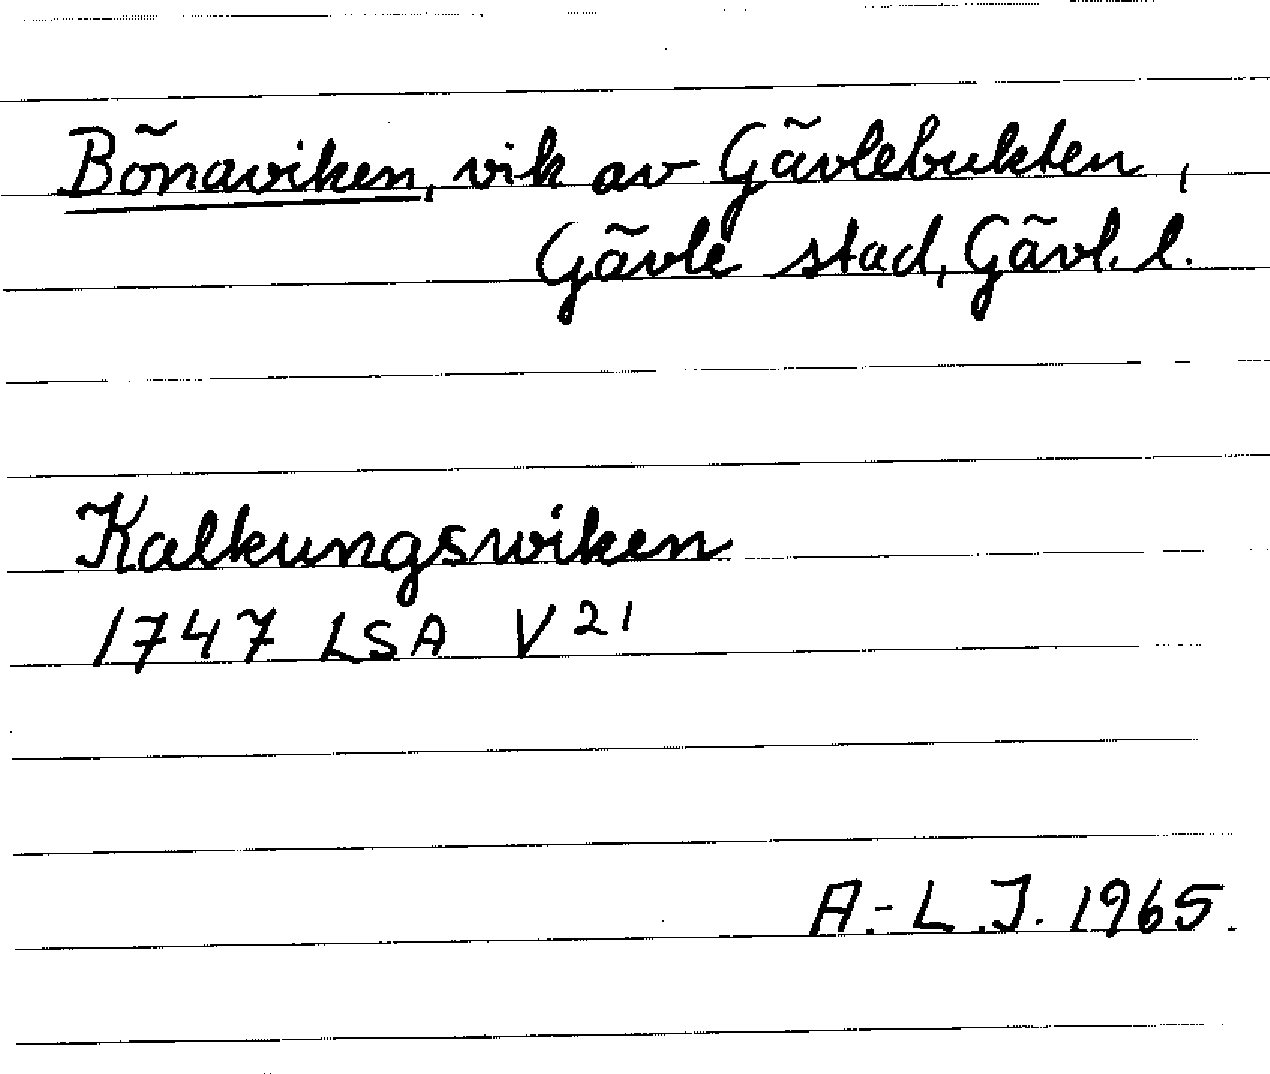 Bönaviken, vik av Gävlebukten,
Gävle stad, Gävl. l.
Kalkungswiken
1747 LSA V²¹
A.-L.J. 1965.